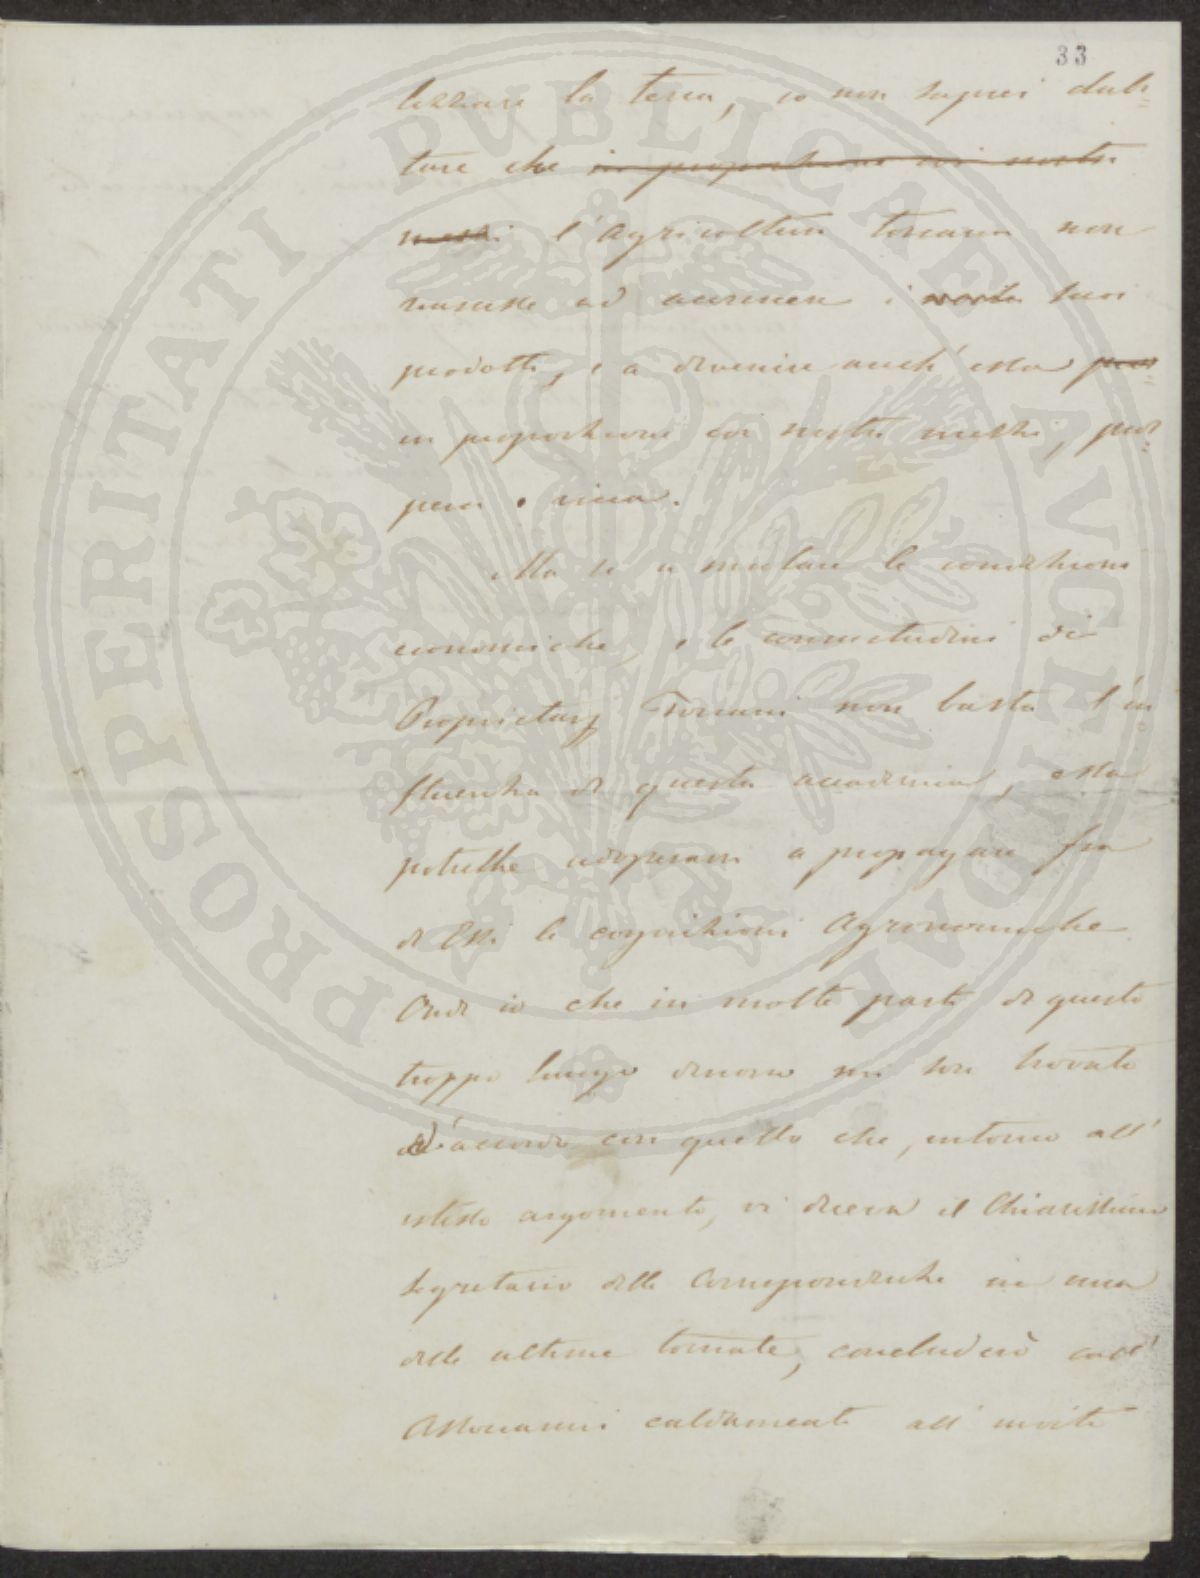 33
lizzare la terra, io non saprei dubi=
tare che in proporzione coi nostri
mezzi l'Agricoltura toscana non
riuscisse ad accrescere i suoi
prodotti, e a divenire anch'essa pros
in proporzione coi nostri mezzi, pros=
pera e ricca.
Ma se a mutare le condizioni
economiche, e le consuetudini di
Proprietarj Toscani non basta l'in=
fluenza di questa accademia, essa
potrebbe adoperarsi a propagare fra
di Essi le cognizioni Agronomiche
Ond' io che in molte parti di questo
troppo lungo discorso mi son trovato
d'accordo con quello che, intorno all'
istesso argomento, vi diceva il Chiarissimo
Segretario delle Corrispondenze in una
delle ultime tornate, concluderò coll'
Associarmi caldamente all' invito
PROSPERITATI PUBLICAE AUGENDAE